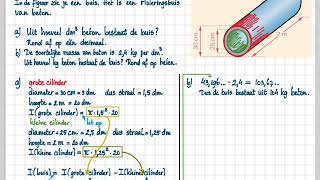 In de figuur zie je een buis. Het is een rioleringsbuis
van beton.
a) Uit hoeveel dm³ beton bestaat de buis?
Rond af op één decimaal.
b) De soortelijke massa van beton is 2,4 kg per dm³.
Uit hoeveel kg beton bestaat de buis? Rond af op helen.
30 cm
25 cm
2 m
a) grote cilinder
diameter = 30 cm = 3 dm dus straal = 1,5 dm
hoogte = 2 m = 20 dm
I (grote cilinder) = π · 1,5² · 20
kleine cilinder let op
diameter = 25 cm = 2,5 dm dus straal = 1,25 dm
hoogte = 2 m = 20 dm
I (kleine cilinder) = π · 1,25² · 20
I (buis) = I (grote cilinder) − I (kleine cilinder)
b) 43,196... · 2,4 = 103,67...
Dus de buis bestaat uit 104 kg beton.